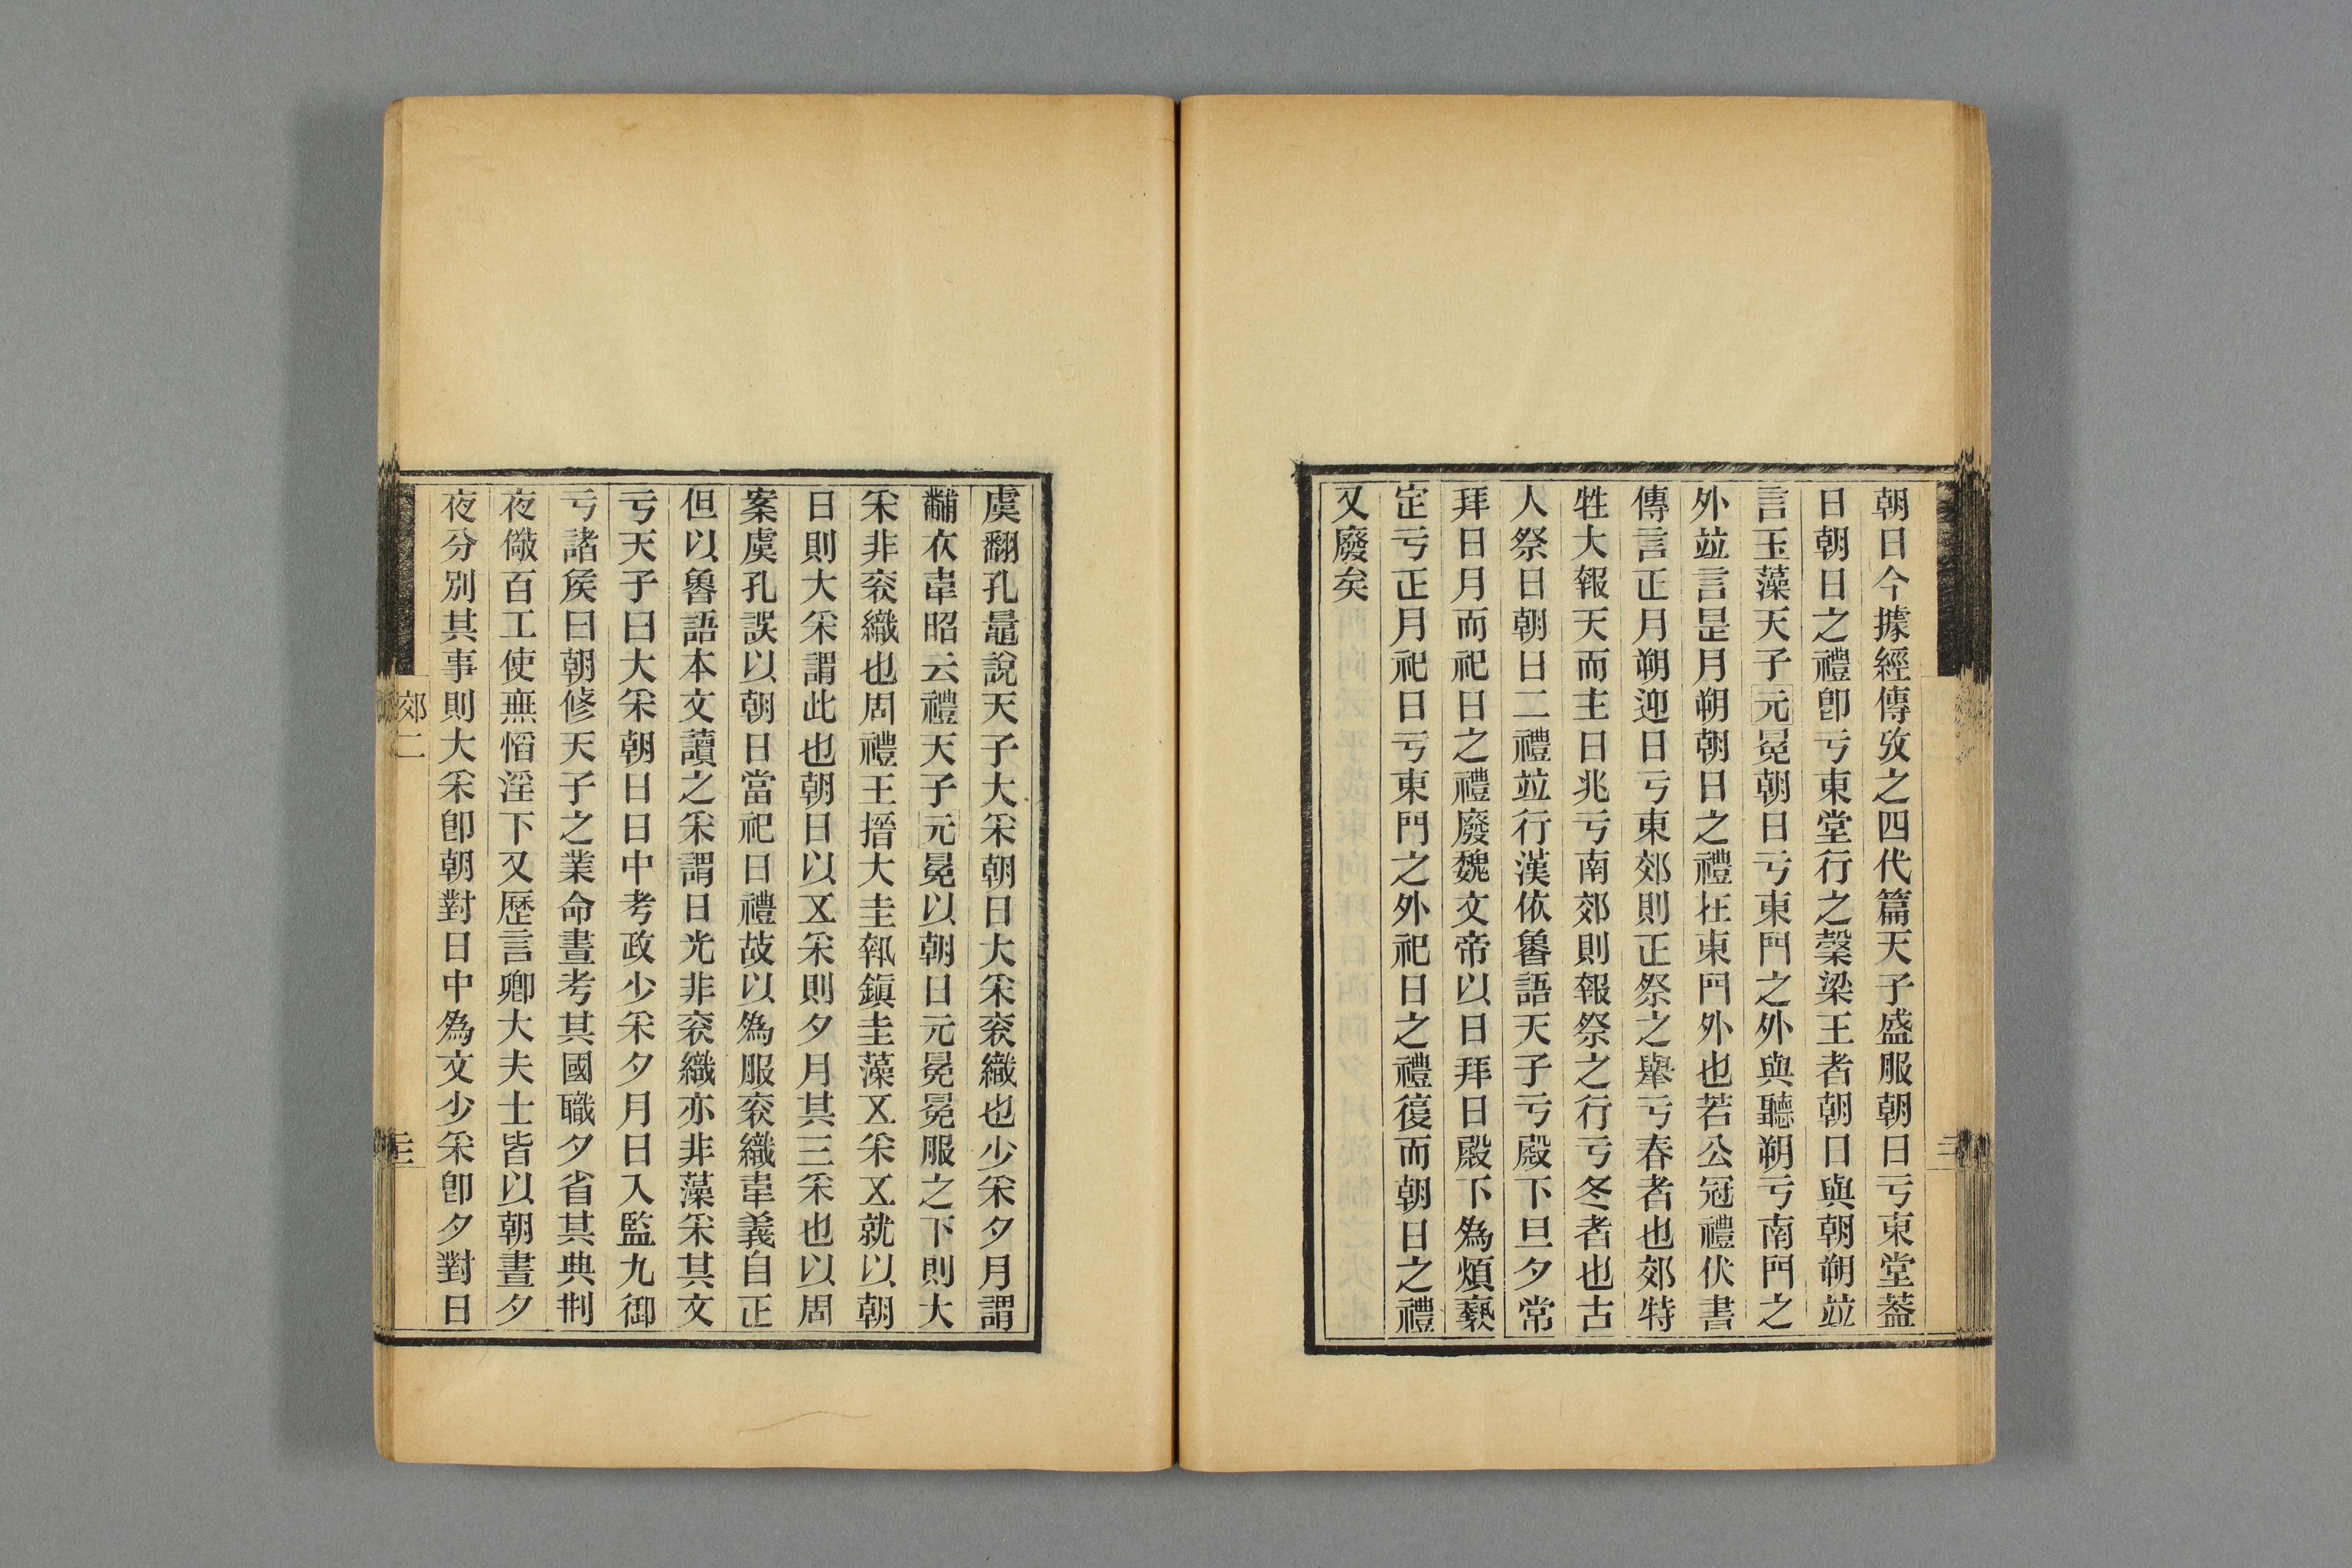 朝日今據經傳攷之四代篇天子盛服朝日亏東堂葢
日朝日之禮卽亏東堂行之榖梁王者朝日與朝朔竝
言玉藻天子元冕朝日亏東門之外與聽朔亏南門之
外竝言昰月朔朝日之禮在東門外也若公冠禮伏書
傳言正月朔迎日亏東郊則正祭之舉亏春者也郊特
牲大報天而主日兆亏南郊則報祭之行亏冬者也古
人祭日朝日二禮竝行漢依魯語天子亏殿下旦夕常
拜日月而祀日之禮廢魏文帝以日拜日殿下為煩褻
定亏正月祀日亏東門之外祀日之禮復而朝日之禮
又廢矣
虞翻孔鼂說天子大采朝日大采袞織也少采夕月謂
黼衣韋昭云禮天子元冕以朝日元冕冕服之下則大
采非袞織也周禮王搢大圭執鎭圭藻五采五就以朝
日則大采謂此也朝日以五采則夕月其三采也以周
案虞孔誤以朝日當祀日禮故以為服袞織韋義自正
但以魯語本文讀之采謂日光非袞織亦非藻采其文
亏天子曰大采朝日日中考政少采夕月日入監九御
亏諸矦曰朝修天子之業命晝考其國職夕省其典㓝
夜儆百工使無慆淫下又歷言卿大夫士皆以朝晝夕
夜分別其事則大采卽朝對日中為文少采卽夕對日
郊二